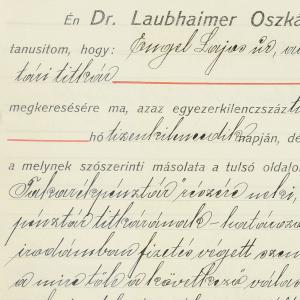 Én Dr. Laubhaimer Oszká
tanusitom, hogy: Engel Lajos úr, a
tári titkár
megkeresésére ma, azaz egyezerkilenczszáz t
hó tizenkilenczedik napján, de
a melynek szószerinti másolata a tulsó oldalo
Takarékpénztár részére neki,
pénztár titkárának - határozo
irodámban fizetés végett szem
a mire tőle a következő válas